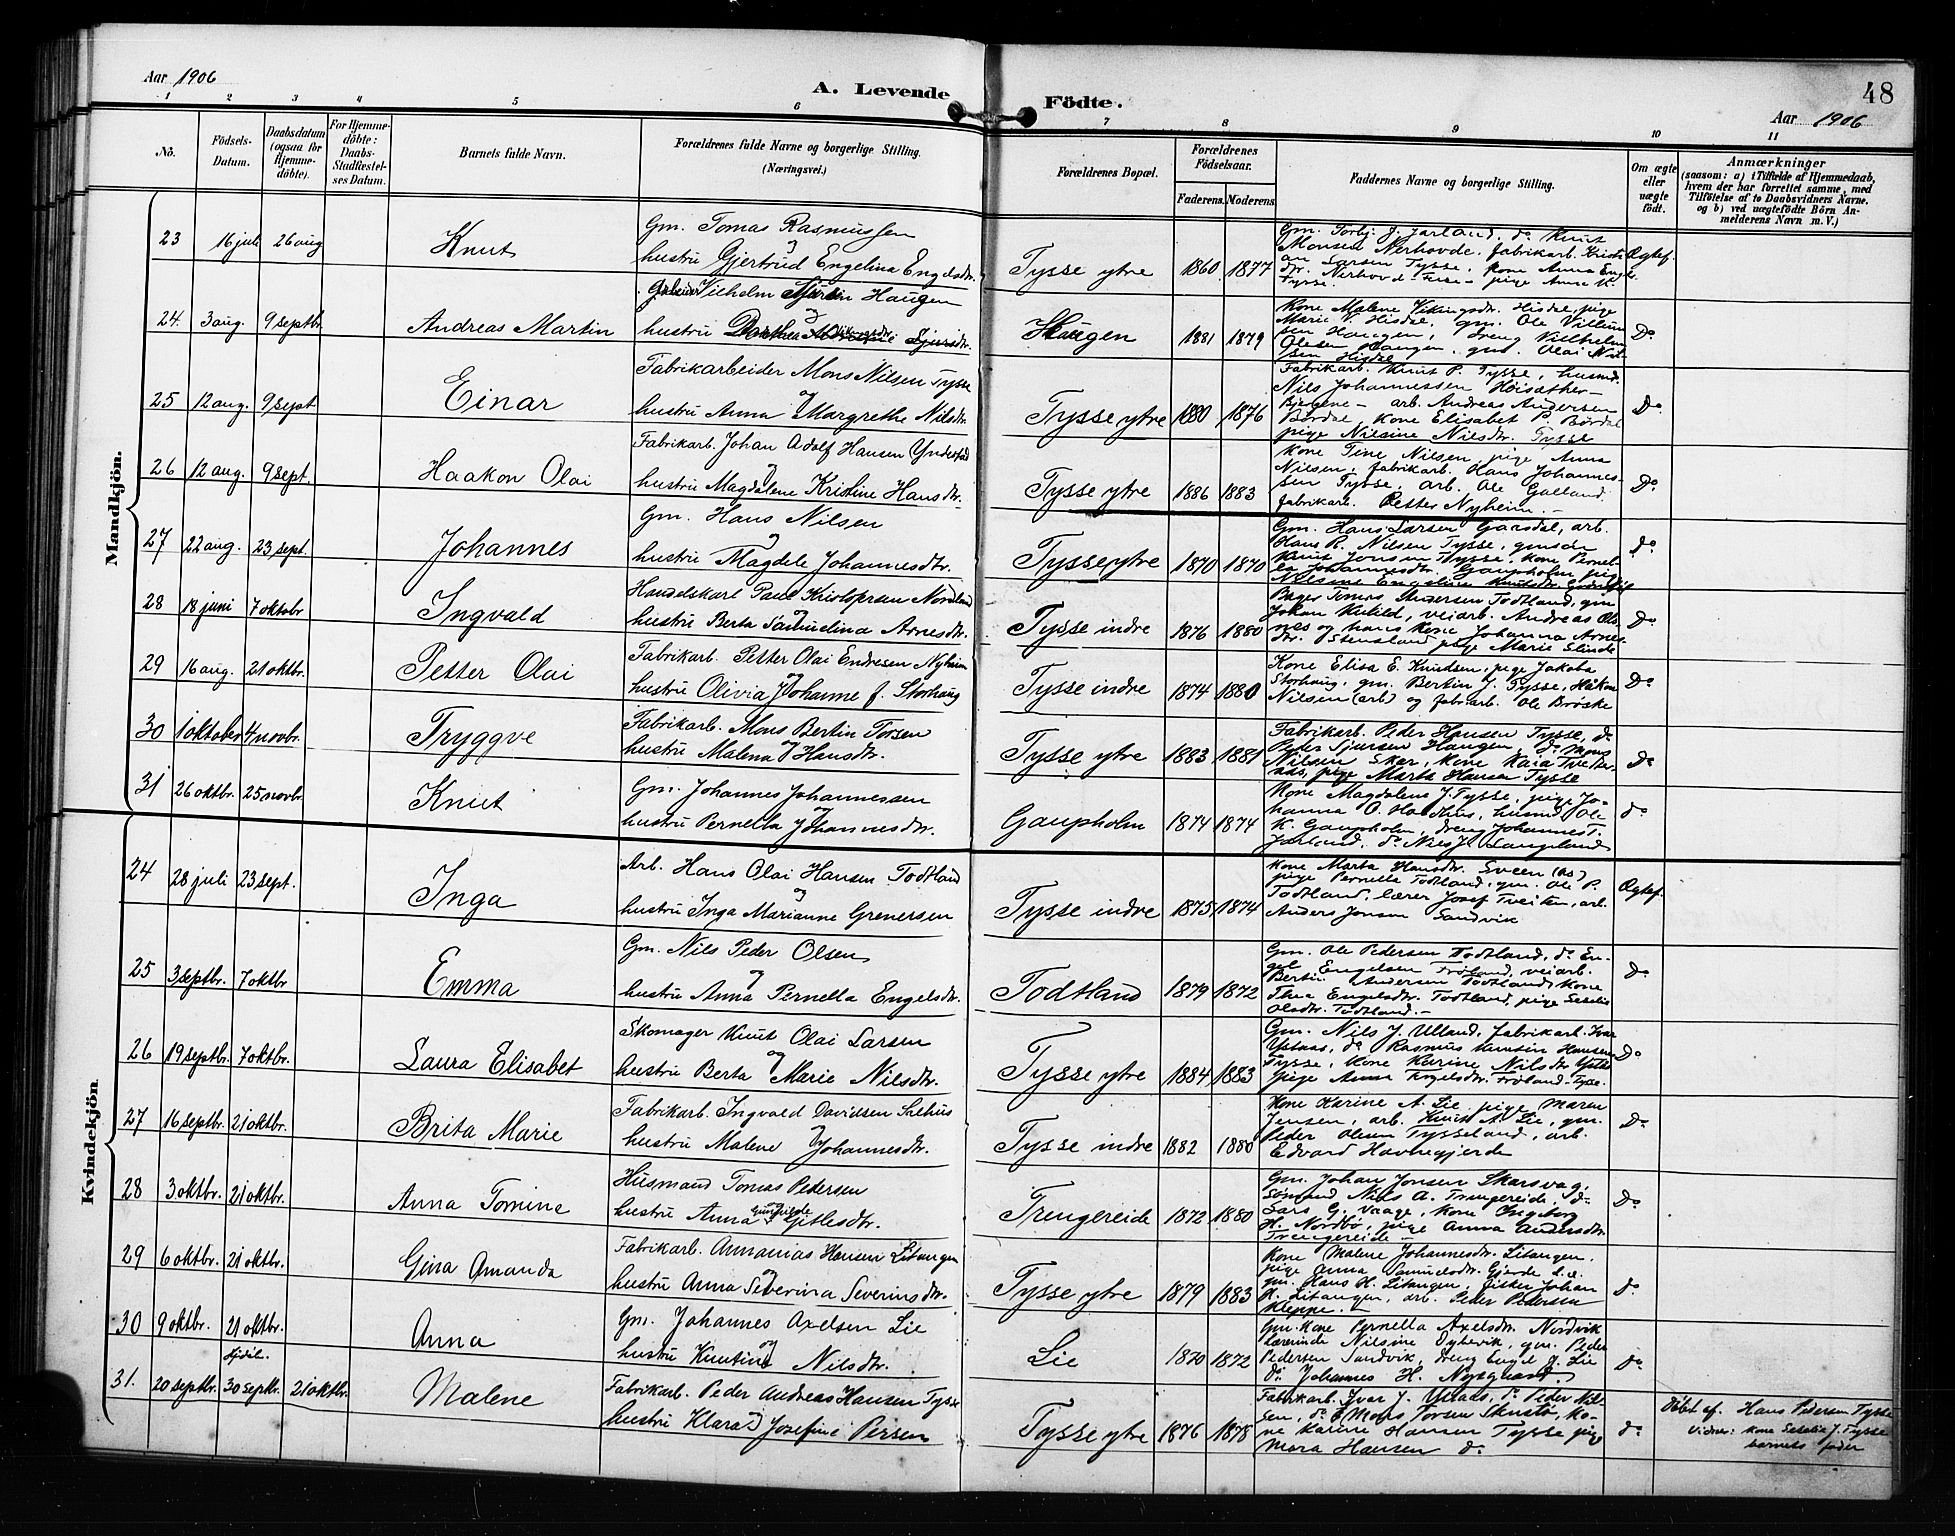 Aar 1906
A. Levende Födte.
48
Aar 1906
1 2 3 4 5 6 7 8 9 10 11
No.
Födsels-Datum.
Daabsdatum (ogsaa for Hjemme-döbte).
For Hjemme-döbte: Daabs-Stadfæstel-ses Datum.
Barnets fulde Navn.
Forældrenes fulde Navne og borgerlige Stilling.
(Næringsvei.)
Forældrenes Bopæl.
Forældrenes Födselsaar.
Faderens. Moderens.
Faddernes Navne og borgerlige Stilling.
Om ægte eller uægte födt.
Anmærkninger
(saasom: a) i Tilfælde af Hjemmedaab, hvem der har forrettet samme, med Tilföielse af to Daabsvidners Navne. og b) ved uægtefödte Börn An-melderens Navn m. V.)
Mandkjön.
23 16 juli 26 aug Knut
Gm. Tomas Rasmussen
hustru Gjertrud Engelina Engelsdtr.
Tysse ytre 1860 1877
Monsen Nerhovde, fabrikarb. Kristi-
an Larsen Tysse, kone Anna Engls.
Ægtef.
24. 3 aug. 9 septbr. Andreas Martin
Arbeider Vilhelm Haugen
hustru
Haugen 1881 1879
Kone Malene Vikingsdtr. Hisdal, pige
Marie V. Hisdal, gm. Ole Villum
sen Haugen, dreng Vilhelm
Olesen Haugen, gm. Olai Nil-
sen Hisdal
Do
25 12 aug. 9 sept Einar
Fabrikarbeider Mons Nilsen Tysse
hustru Anna Margrethe Nilsdtr.
Tysse ytre 1880 1876
Fabrikarb. Knut P. Tysse, husmd.
Nils Johannessen Höisæther
Bjergene - arb. Andreas Andersen
Børdal, kone Elisabet P. Børdal
pige Nilsine Nilsdtr. Tysse
Do
26 12 aug. 9 sept. Haakon Olai
Fabrikarb. Johan Adolf Hansen Yndestad
hustru Magdalene Kristine Hansdtr.
Tysse ytre 1886 1883
Kone Tine Nilsen, pige Anna
Nilsen, fabrikarb. Hans Johannes-
sen Tysse, arb. Ole Galland.
fabrikarb. Petter Nyheim. -
Do
27 22 aug. 23 sept. Johannes
Gm. Hans Nilsen
hustru Magdele Johannesdtr.
Tysse ytre 1870 1870
Gm. Hans Larsen Gaasdal, arb.
Hans R. Nilsen Tysse, gmsdr.
Knut Jonsen Tysse, kone Pernel-
la Johannesdtr. Gaupholm, pige
Do
28 18 juni 7 oktobr Ingvald
Handelskarl Paul Kristofersen Nordland
hustru Berta Samuelina Arnesdtr.
Tysse indre 1876 1880
Bager Tomas Andersen Todtland, gm
Johan Kutild, veiarb. Andreas Ols
nes og hans kone Johanna Arnes-
dtr. Stensland pige Marie Slinde
Do
29 16 aug. 21 oktbr. Petter Olai
Fabrikarb. Petter Olai Endresen Nyheim
hustru Olivia Johanne f. Storhaug
Tysse indre 1874 1880
Kone Elisa E. Knudsen, pige Jakoba
Storhaug, gm. Bertin J. Tysse, Håkon
Nilsen (arb) og fabrarb. Ole Brøske
Do
30 1 oktober 4 novbr. Tryggve
Fabrikarb. Mons Bertin Torsen
hustru Malena Hansdtr.
Tysse ytre 1883 1881
Fabrikarb. Peder Hansen Tysse, do
Peder Sjursen Haugen, do Mons
Nilsen Skar, kone Kaia Tveiter-
aas, pige Marta Hansen Tysse
Do
31 26 oktbr. 25 novbr. Knut
Gm. Johannes Johannessen
hustru Pernella Johannesdtr.
Gaupholm 1874 1874
Kone Magdalena J. Tysse, pige Jo-
hanna O. Hodthus, husmd. Ole
K. Gaupholm, dreng Johannes T.
Jarland, do Niels J. Langeland
do
Kvindekjön.
24 28 juli 23 sept. Inga
Arb. Hans Olai Hansen Todtland
hustru Inga Marianne Grenersen
Tysse indre 1875 1874
Kone Marta Hansdtr. Sveen (Os)
pige Pernella Todtland, gm. Ole P.
Todtland, lærer Josef Tveiten, arb.
Anders Jonsen Sandvik
Ægtef.
25 3 septbr. 7 oktbr Emma
Gm. Nils Peder Olsen
hustru Anna Pernella Engelsdtr.
Todtland 1879 1872
Gm. Ole Pedersen Todtland, do En-
gel Engelsen Frøland, veiarb.
Bertin Andersen Todtland, kone
Thea Engelsdtr. Todtland, pige Seselia
Olsdtr. Todtland. -
Do
26 19 septbr. 7 oktbr. Laura Elisabet
Skomager Knut Olai Larsen
hustru Berta Marie Nilsdtr.
Tysse ytre 1884 1883
Gm. Nils J. Utland, fabrikarb. Ivar
Ystaas, do Rasmus Hansen
Tysse, kone Karine Nilsdtr.
pige Anna Engelsdtr. Frøland - Tysse.
Do
27 16 septbr. 21 oktbr. Brita Marie
Fabrikarb. Ingvald Davidsen Sælhus
hustru Malene Johannesdtr.
Tysse indre 1882 1880
Kone Karine A. Lie, pige Maren
Jensen, arb. Knut A. Lie, gm.
Peder Olsen Tysseland, arb.
Edvard Havregjerde
Do
28 3 oktbr. 21 oktbr. Anna Tomine
Husmand Tomas Pedersen
hustru Anna Gunhilde Gitlesdtr.
Trengereide 1872 1880
Gm. Johan Jonsen Skarsvag,
Sømand Nils A. Trengereide, do
Lars G. Vaage, kone Ingeborg
H. Nordbø, pige Anna Andersdtr
Trengereide -
Do
29 6 oktbr. 21 oktbr. Gina Amanda
Fabrikarb. Annanias Hansen Litangen
hustru Anna Severina Severinsdtr.
Tysse ytre 1879 1883
Kone Malene Johannesdtr. Litangen.
pige Anna Samuelsdtr. Gjerde s.d.
gm. Hans H. Litangen, fisker Johan
H. Litangen, arb. Peder Pedersen
Kleppe. -
Do
30 9 oktbr. 21 oktbr. Anna
Gm. Johannes Axelsen Lie
hustru Knutine Nilsdtr.
Lie 1870 1872
Gm. kone Pernella Axelsdtr. Nordvik
Lærerinde Nilsine Dyhevik, gm. Peder
Pedersen Sandvik, dreng Engel J. Lie
do Johannes H. Nygaard.
Do
Hjdöbt.
31. 20 septbr. 30 septbr. 21 oktbr. Malene
Fabrikarb. Peder Andreas Hansen Tysse
hustru Klara Josefine Persen
Tysse ytre 1876 1878
Fabrikarb. Ivar J. Ystaas, do Peder Nil-
sen, do Mons Torsen Skuste, ko-
ne Karine Hansen Tysse, pige
Mara Hansen do
do
Döbt af. Hans Pedersen Tysse
Vidner: kone Seselie J. Tysse
barnets fader